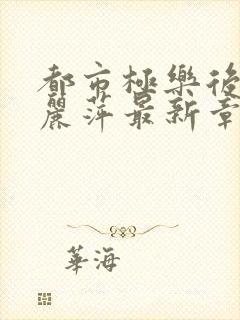 都市極樂後
麗萍最新章
華海